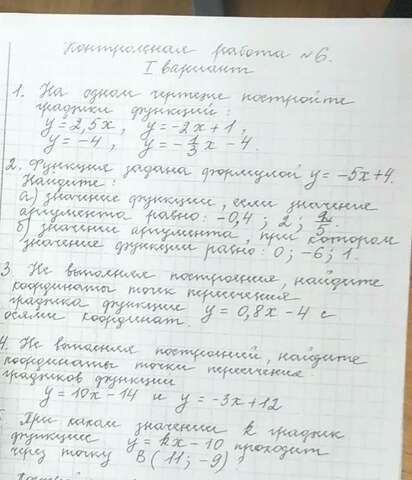 Контрольная работа №6.
I вариант
1. На одном чертеже постройте
графики функций:
y = 2,5x, y = -2x + 1,
y = -4, y = -1/3 x - 4.
2. Функция задана формулой y = -5x+4.
Найдите:
а) значение функции, если значение
аргумента равно: -0,4; 2;
б) значение аргумента, при котором
значение функции равно: 0; -6; 1.
3. Не выполняя построения, найдите
координаты точек пересечения
графика функции y = 0,8x - 4 с
осями координат.
4. Не выполняя построений, найдите
координаты точки пересечения
графиков функции
y = 10x - 14 и y = -3x + 12
При каком значении k график
функции y = kx - 10 проходит
через точку B(11; -9)